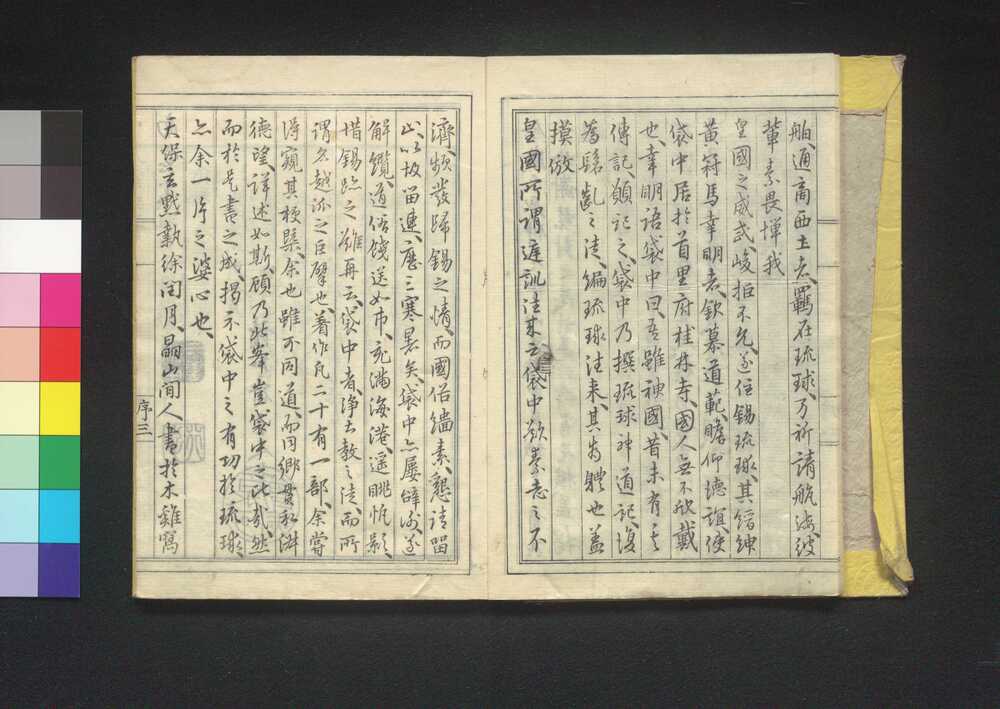 舶通商西土者、羈在琉球、乃祈請航海、彼
輩素畏憚我
皇國之威武、峻拒不允、遂住錫琉球、其縉紳
黄冠馬幸明者、欽慕道範、瞻仰德誼、使
袋中居於首里府桂林寺、國人無不欣戴
也、幸明語袋中曰、吾雖神國、昔未有
傳記、願記之、袋中乃撰琉球神道記、復
為 之徒、編琉球往来、其為體也、蓋
摸倣
皇國所謂庭訓往来云、袋中欲素志之不
濟、頻發歸錫之情、而國俗緇素、懇請留
止、以故留連、歴三寒暑矣、袋中亦屡辭、遂
解纜、道俗餞送如市、充滿海港、遥眺帆影、
惜錫跡之難再云、袋中者、浄土教之徒、而所
謂名越派之巨擘也、著作凡二十有一部、余嘗
得窺其梗槩、余也雖不同道、而同郷貫私淑
德望、詳述如斯、顧乃此擧豈袋中之比哉、然
而於是書之成、掲示袋中之有功於琉球
亦余一片之婆心也、
天保玄黙執徐閏月、晶山間人書於木雞窩
序三